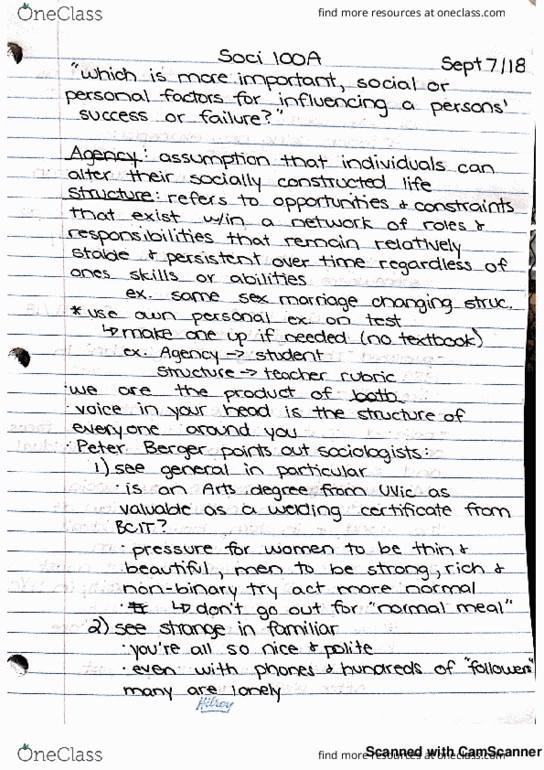 OneClass
find more resources at oneclass.com
Soci 100A
Sept 7/18
"which is more important, social or
personal factors for influencing a persons'
success or failure?"
Agency: assumption that individuals can
alter their socially constructed life
structure: refers to opportunities & constraints
that exist w/in a network of roles &
responsibilities that remain relatively
stable & persistent over time regardless of
ones skills or abilities
ex. same sex marriage changing struc.
* use own personal ex. on test
↳ make one up if needed (no textbook)
ex. Agency → student
structure → teacher rubric
· we are the product of both
· voice in your head is the structure of
everyone around you
· Peter Berger points out sociologists:
1) see general in particular
· is an Arts degree from UVic as
valuable as a welding certificate from
BCIT?
· pressure for women to be thin &
beautiful, men to be strong, rich &
non-binary try act more normal
· ↳ don't go out for "normal meal"
2) see strange in familiar
· you're all so nice & polite
· even with phones & hundreds of "followers"
many are lonely
Hilroy
OneClass
find more resources at oneclass.com
Scanned with CamScanner